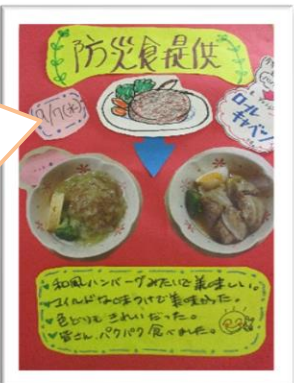 防災食提供
9/7(水)
ロール
キャベツ
和風ハンバーグみたいで美味しい。
マイルドな味つけで美味かった。
色どりもきれいだった。
皆さん、パクパク食べました。